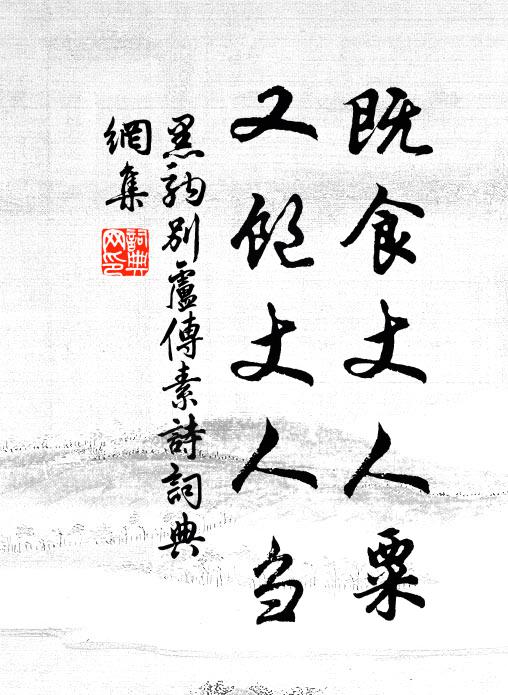 既食丈人粟
又飽丈人刍
黑駒別盧傳素詩詞典
網集
詞典
网印